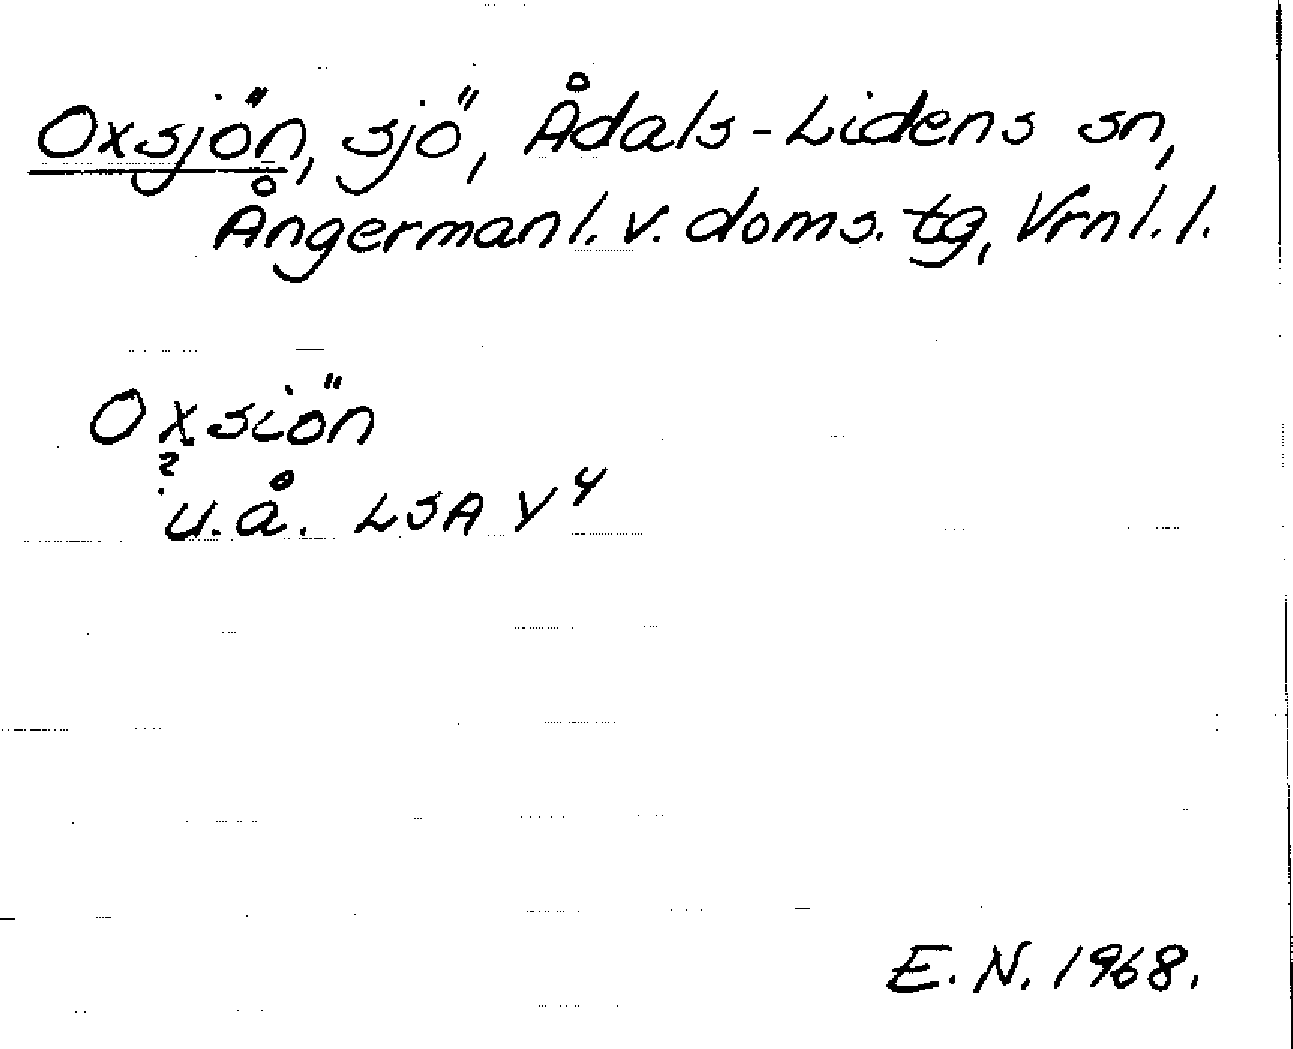 Oxsjön, sjö, Ådals-Lidens sn,
Ångermanl. v. doms. tg, Vrnl. l.
Oxsiön
?
u.å. LSA V4
E. N. 1968.